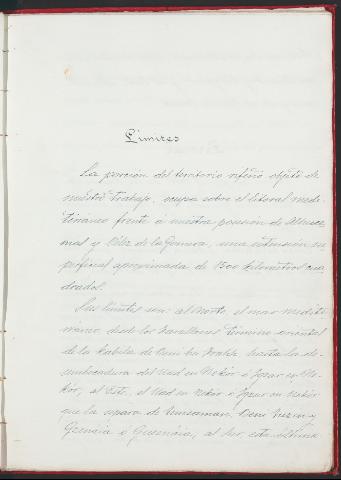 Límites
La porción del territorio rifeño objeto de
nuestro trabajo, ocupa sobre el litoral medi-
terráneo frente á nuestra posesión de Alhuce-
mas y Vélez de la Gomera, una extensión su-
perficial aproximada de 1500 kilómetros cua-
drados.
Sus límites son: al Norte, el mar medite-
rráneo desde los término oriental
de la kabila de Beni bu hasta la de-
sembocadura del Uad en Nekor ó Igzar en Ne-
kor, al Este, el Uad en Nekor ó Igzar en Nekor
que la separa de Temsaman, Beni Tuzin y
Gzenaia ó, al Sur, esta última